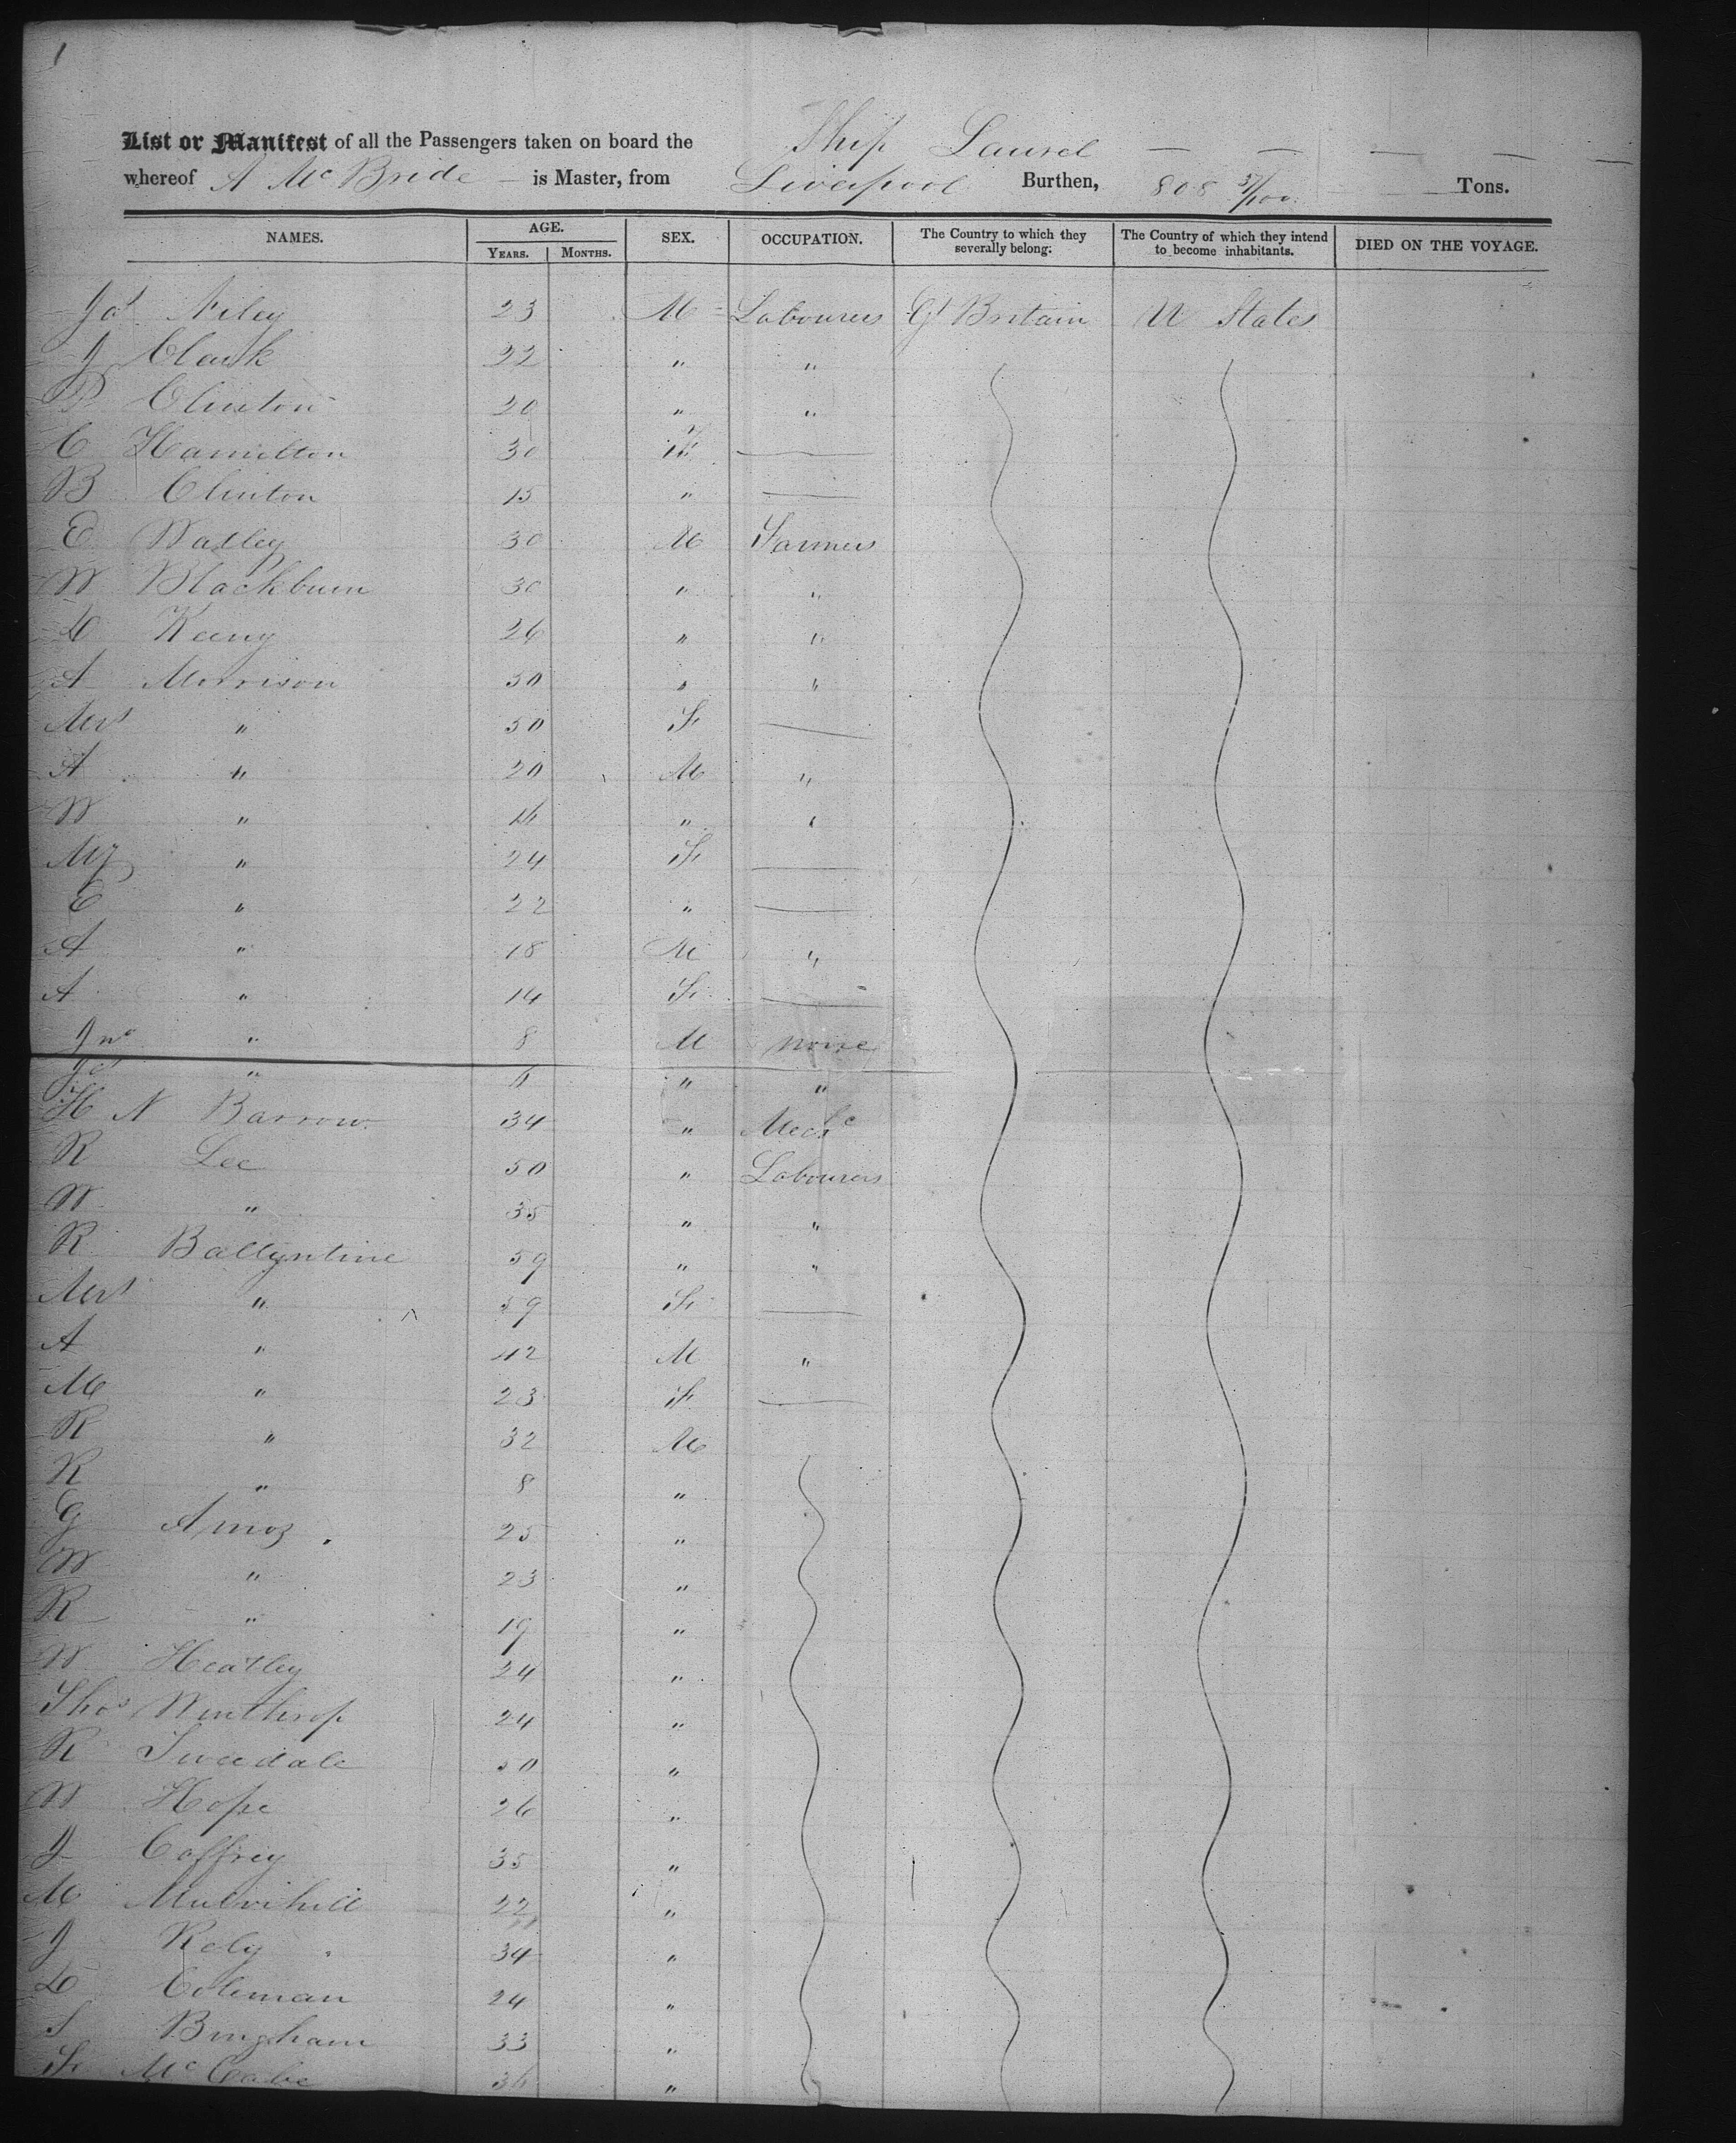 1
List or Manifest of all the Passengers taken on board the Ship Laurel — — — — —
whereof A McBride — is Master, from Liverpool Burthen, 808 37/100 — Tons.
NAMES. AGE. SEX. OCCUPATION. The Country to which they severally belong. The Country of which they intend to become inhabitants. DIED ON THE VOYAGE.
YEARS. MONTHS.
Jas 23 M Labourers Gt Britain U States
J Clark 22 " "
P Clinton 20 " "
C Hamilton 30 F —
B Clinton 15 " —
E Watley 30 M Farmers
W Blackburn 30 " "
D Keeny 26 " "
A Morrison 50 " "
Mrs " 50 F —
A " 20 M "
W " 16 " "
My " 24 F —
E " 22 " —
A " 18 M "
A " 14 F —
Jno " 8 M none
Jas " 6 " "
H N Barrow 34 " Mecc
R Lee 50 " Labourers
W " 35 " "
R Ballyntine 59 " "
Mrs " 59 F —
A " 42 M "
M " 23 F —
R " 32 M
R " 8 "
G Amos 25 "
W " 23 "
R " 19 "
W Heatley 24 "
Thos Winthrop 24 "
R Tweedale 50 "
W Hope 26 "
J Caffrey 35 "
M Mulvihill 22 "
J Kely 34 "
D Coleman 24 "
S Bingham 33 "
F McCabe 36 "